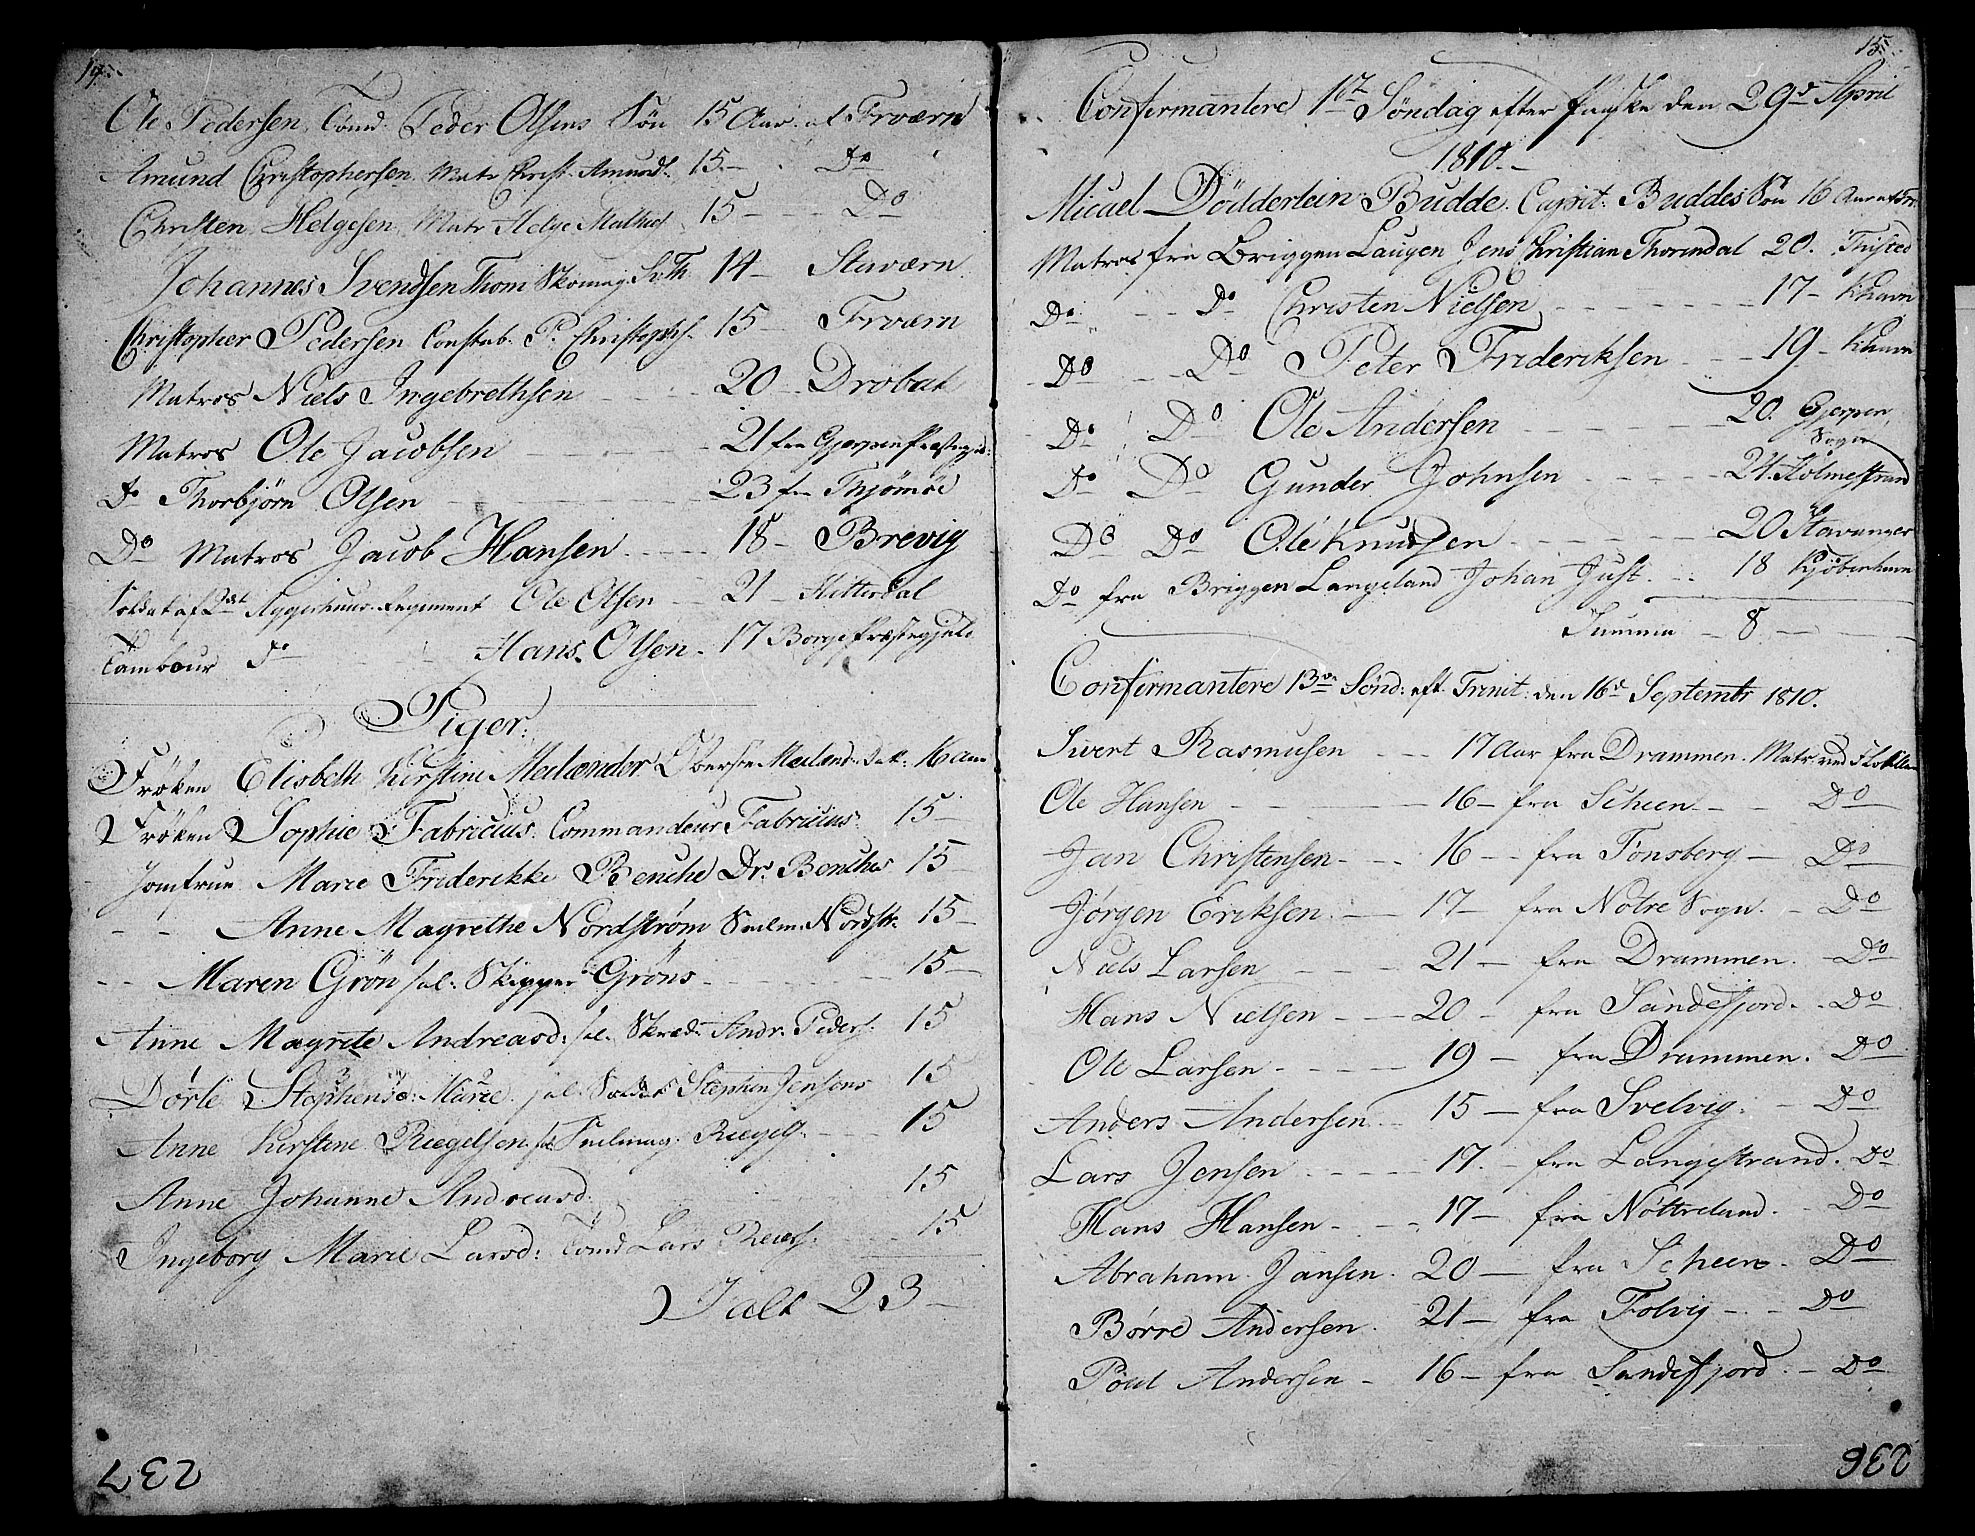 14.
Ole Pedersen, Tømd. Peder Olsens Søn 15 Aar. af Frværn
Amund Christophersen Matr Christ. Amunds. 15 – Do
Christen Helgesen, Matr Helge 15 – Do
Johannes Svendsen Thom Skomag. Sv. Th. 14 – Staværn
Christopher Pedersen Constab. P. Christophs. 15 – Frværn
Matros Niels Ingebrethsen 20 – Drøbak
Matros Ole Jacobsen 21 fra Gjerpen Præstegield:
Do Thorbjörn Olsen 23 fra Thjømöe
Do Matros Jacob Hansen 18 – Brevig
Soldat af 2det Aggerhuus. Regiment Ole Olsen 21 – Hitterdal
Tambour Do Hans Olsen – 17 Borge Præstegjeld
Piger:
Frøken Elisbeth Kirstine Mælænder Oberste Mæland. Dat: 16 Aar
Frøken Sophie Fabricius. Commandeur Fabricius 15 –
Jomfrue Marie Friderikke Benche Dr. Benches 15 –
– – Anne Magrethe Nordstrøm Seilm. Nordstr. 15 –
– – Maren Grön sal: Skipper Gröns – 15 –
Anne Magrete Andreasd: sal. Skræd. Andr. Peders. 15
Dørte Stephensd: Marie. sal. Soldat Stephen Jensens 15
Anne Kirstine Riegelsen sal Seilmag. Riegels. – 15
Anne Johanne Andreasd. 15
Ingeborg Marie Larsd: Tömd Lars Reiers. 15
Ialt 23 –
237
15.
Confirmantere 1ste Søndag efter Paaske den 29de April
1810. –
Micael Döderlein Budde. Capit: Buddes Søn 16 Aar
Matros fra Briggen Laugen Jens Christian Thorndal 20. Thisted
Do – Do Christen Nielsen – 17 – Khavn
Do – Do Peter Frideriksen – 19 – Khavn
Do Do Ole Andersen – 20. Gjerpen
Sogn
Do Do Gunder Johnsen – 24. Holmestrand
Do Do Ole Knudsen – 20 Stavanger
Do fra Briggen Langeland Johan Just. – 18 Kjöbenhavn
Summa – 8 –
Confirmantere 13de Sønd: eft. Trinit: den 16de Septembr 1810.
Sivert Rasmusen – 17 Aar fra Drammen. Matr. ved Flotillen
Ole Hansen – 16 – fra Scheen – Do
Jan Christensen – 16 – fra Tønsberg – Do
Jørgen Eriksen. – 17 – fra Nøtre Sogn. – Do
Niels Larsen – 21 – fra Drammen. – Do
Hans Nielsen – 20 – fra Sandefjord. – Do
Ole Larsen – 19 – fra Drammen. Do
Anders Andersen. – 15 – fra Svelvig. – Do
Lars Jensen – 17. – fra Langestrand. Do
Hans Hansen – 17 – fra Nøtterland. – Do
Abraham. Jansen. 20 – fra Scheen. – Do
Børre Andersen. 21 – fra Tolvig – Do
Pöul Andersen – 16 – fra Sandefjord – Do
236